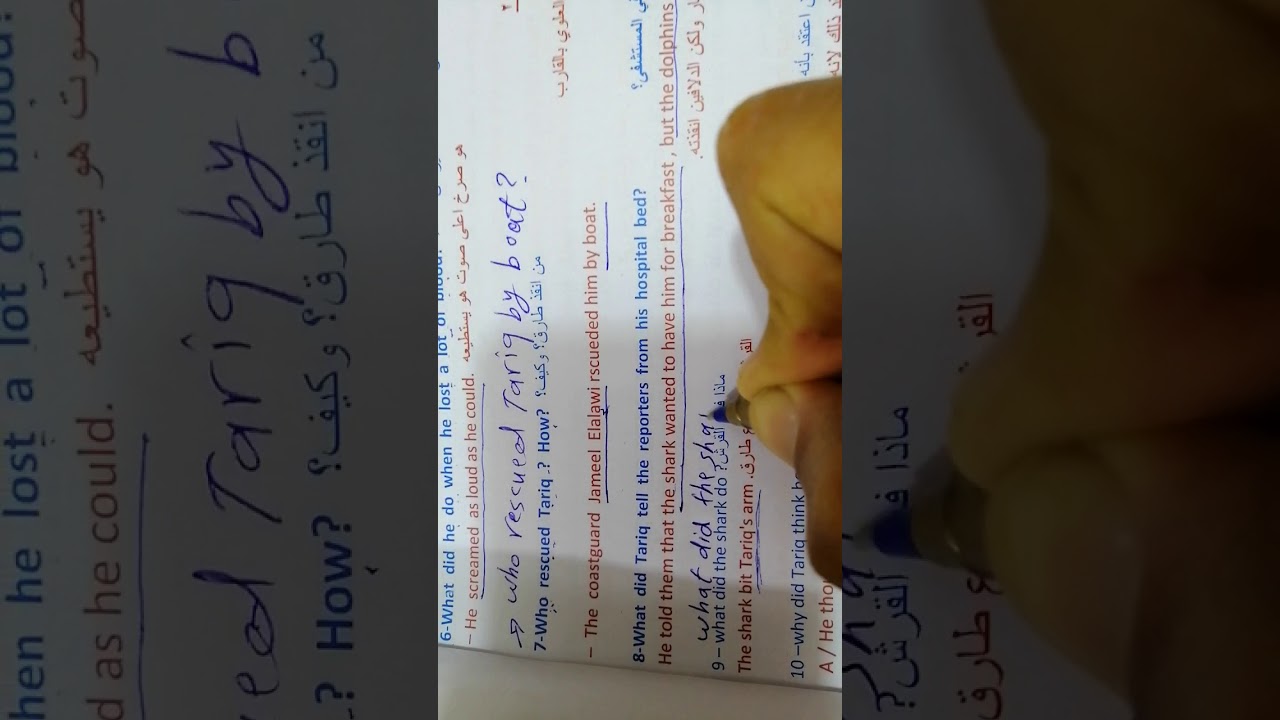 6-What did he do when he lost a lot of blood?
– He screamed as loud as he could. هو صرخ اعلى صوت هو يستطيعه
→ who rescued Tariq by boat?
7-Who rescued Tariq.? How? من انقذ طارق؟ وكيف؟
– The coastguard Jameel Elalawi rscueded him by boat. العلوي بالقارب
8-What did Tariq tell the reporters from his hospital bed? المستشفى؟
He told them that the shark wanted to have him for breakfast , but the dolphins
ولكن الدلافين انقذته.
what did the sha
9 – what did the shark do ? ماذا القرش؟
The shark bit Tariq's arm . طارق
10 –why did Tariq think اعتقد بانه
A / He tho ذلك لانه